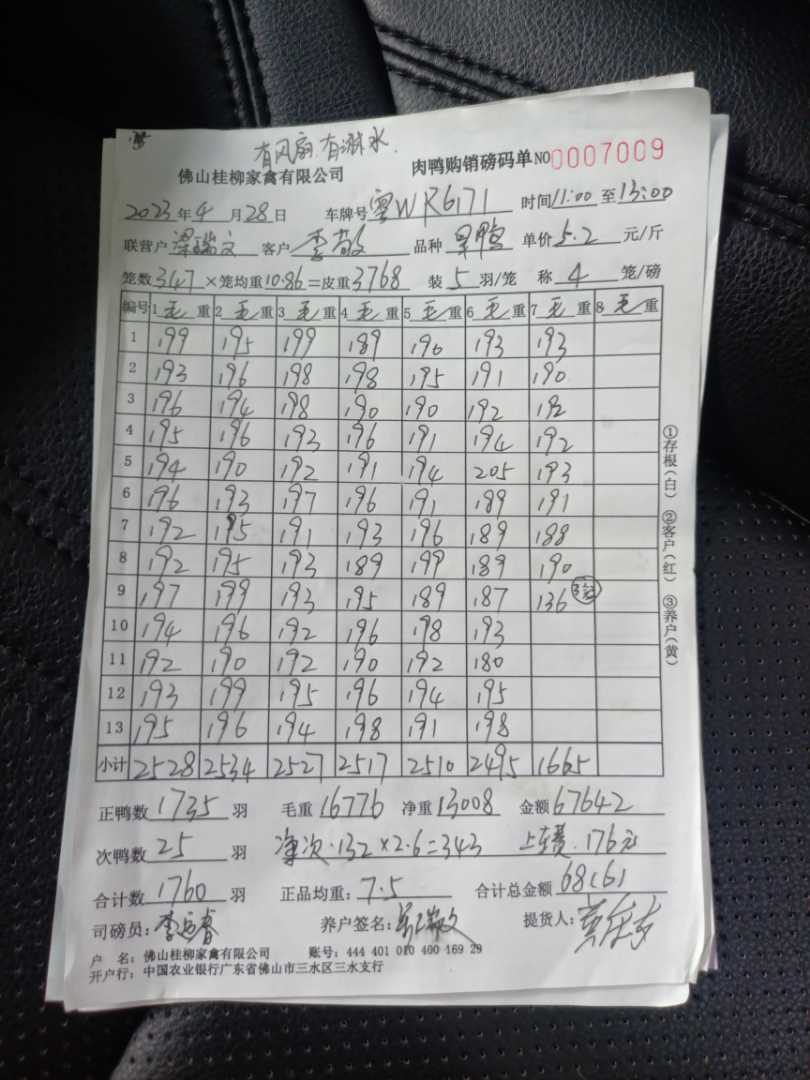 有风扇.有淋水.
佛山桂柳家禽有限公司 肉鸭购销磅码单 NO 0007009
2023年4月28日 车牌号 粤WR6171 时间11:00至13:00
联营户 梁瑞文 客户 李敬 品种 单价5.2元/斤
笼数347×笼均重10.86=皮重3768 装5羽/笼 称4笼/磅
编号 1毛重 2毛重 3毛重 4毛重 5毛重 6毛重 7毛重 8毛重
1 199 195 199 189 190 193 193
2 193 196 198 198 195 191 190
3 196 194 198 190 190 192 192
4 195 196 193 196 191 194 192
5 194 190 192 191 194 205 193
6 196 193 197 196 191 189 191
7 192 195 191 193 196 189 188
8 192 195 193 189 199 189 190
9 197 199 193 195 189 187 136
10 194 196 192 196 198 193
11 192 190 192 190 192 180
12 193 199 195 196 194 195
13 195 196 194 198 191 198
小计 2528 2534 2527 2517 2510 2495 1665
正鸭数 1735 羽 毛重 16776 净重 13008 金额 67642
次鸭数 25 羽 净次.132×2.6=343 上车费.176元
合计数 1760 羽 正品均重: 7.5 合计总金额 68161
司磅员: 养户签名: 提货人:
户 名: 佛山桂柳家禽有限公司 账号: 444 401 010 400 169 29
开户行: 中国农业银行广东省佛山市三水区三水支行
①存根(白) ②客户(红) ③养户(黄)